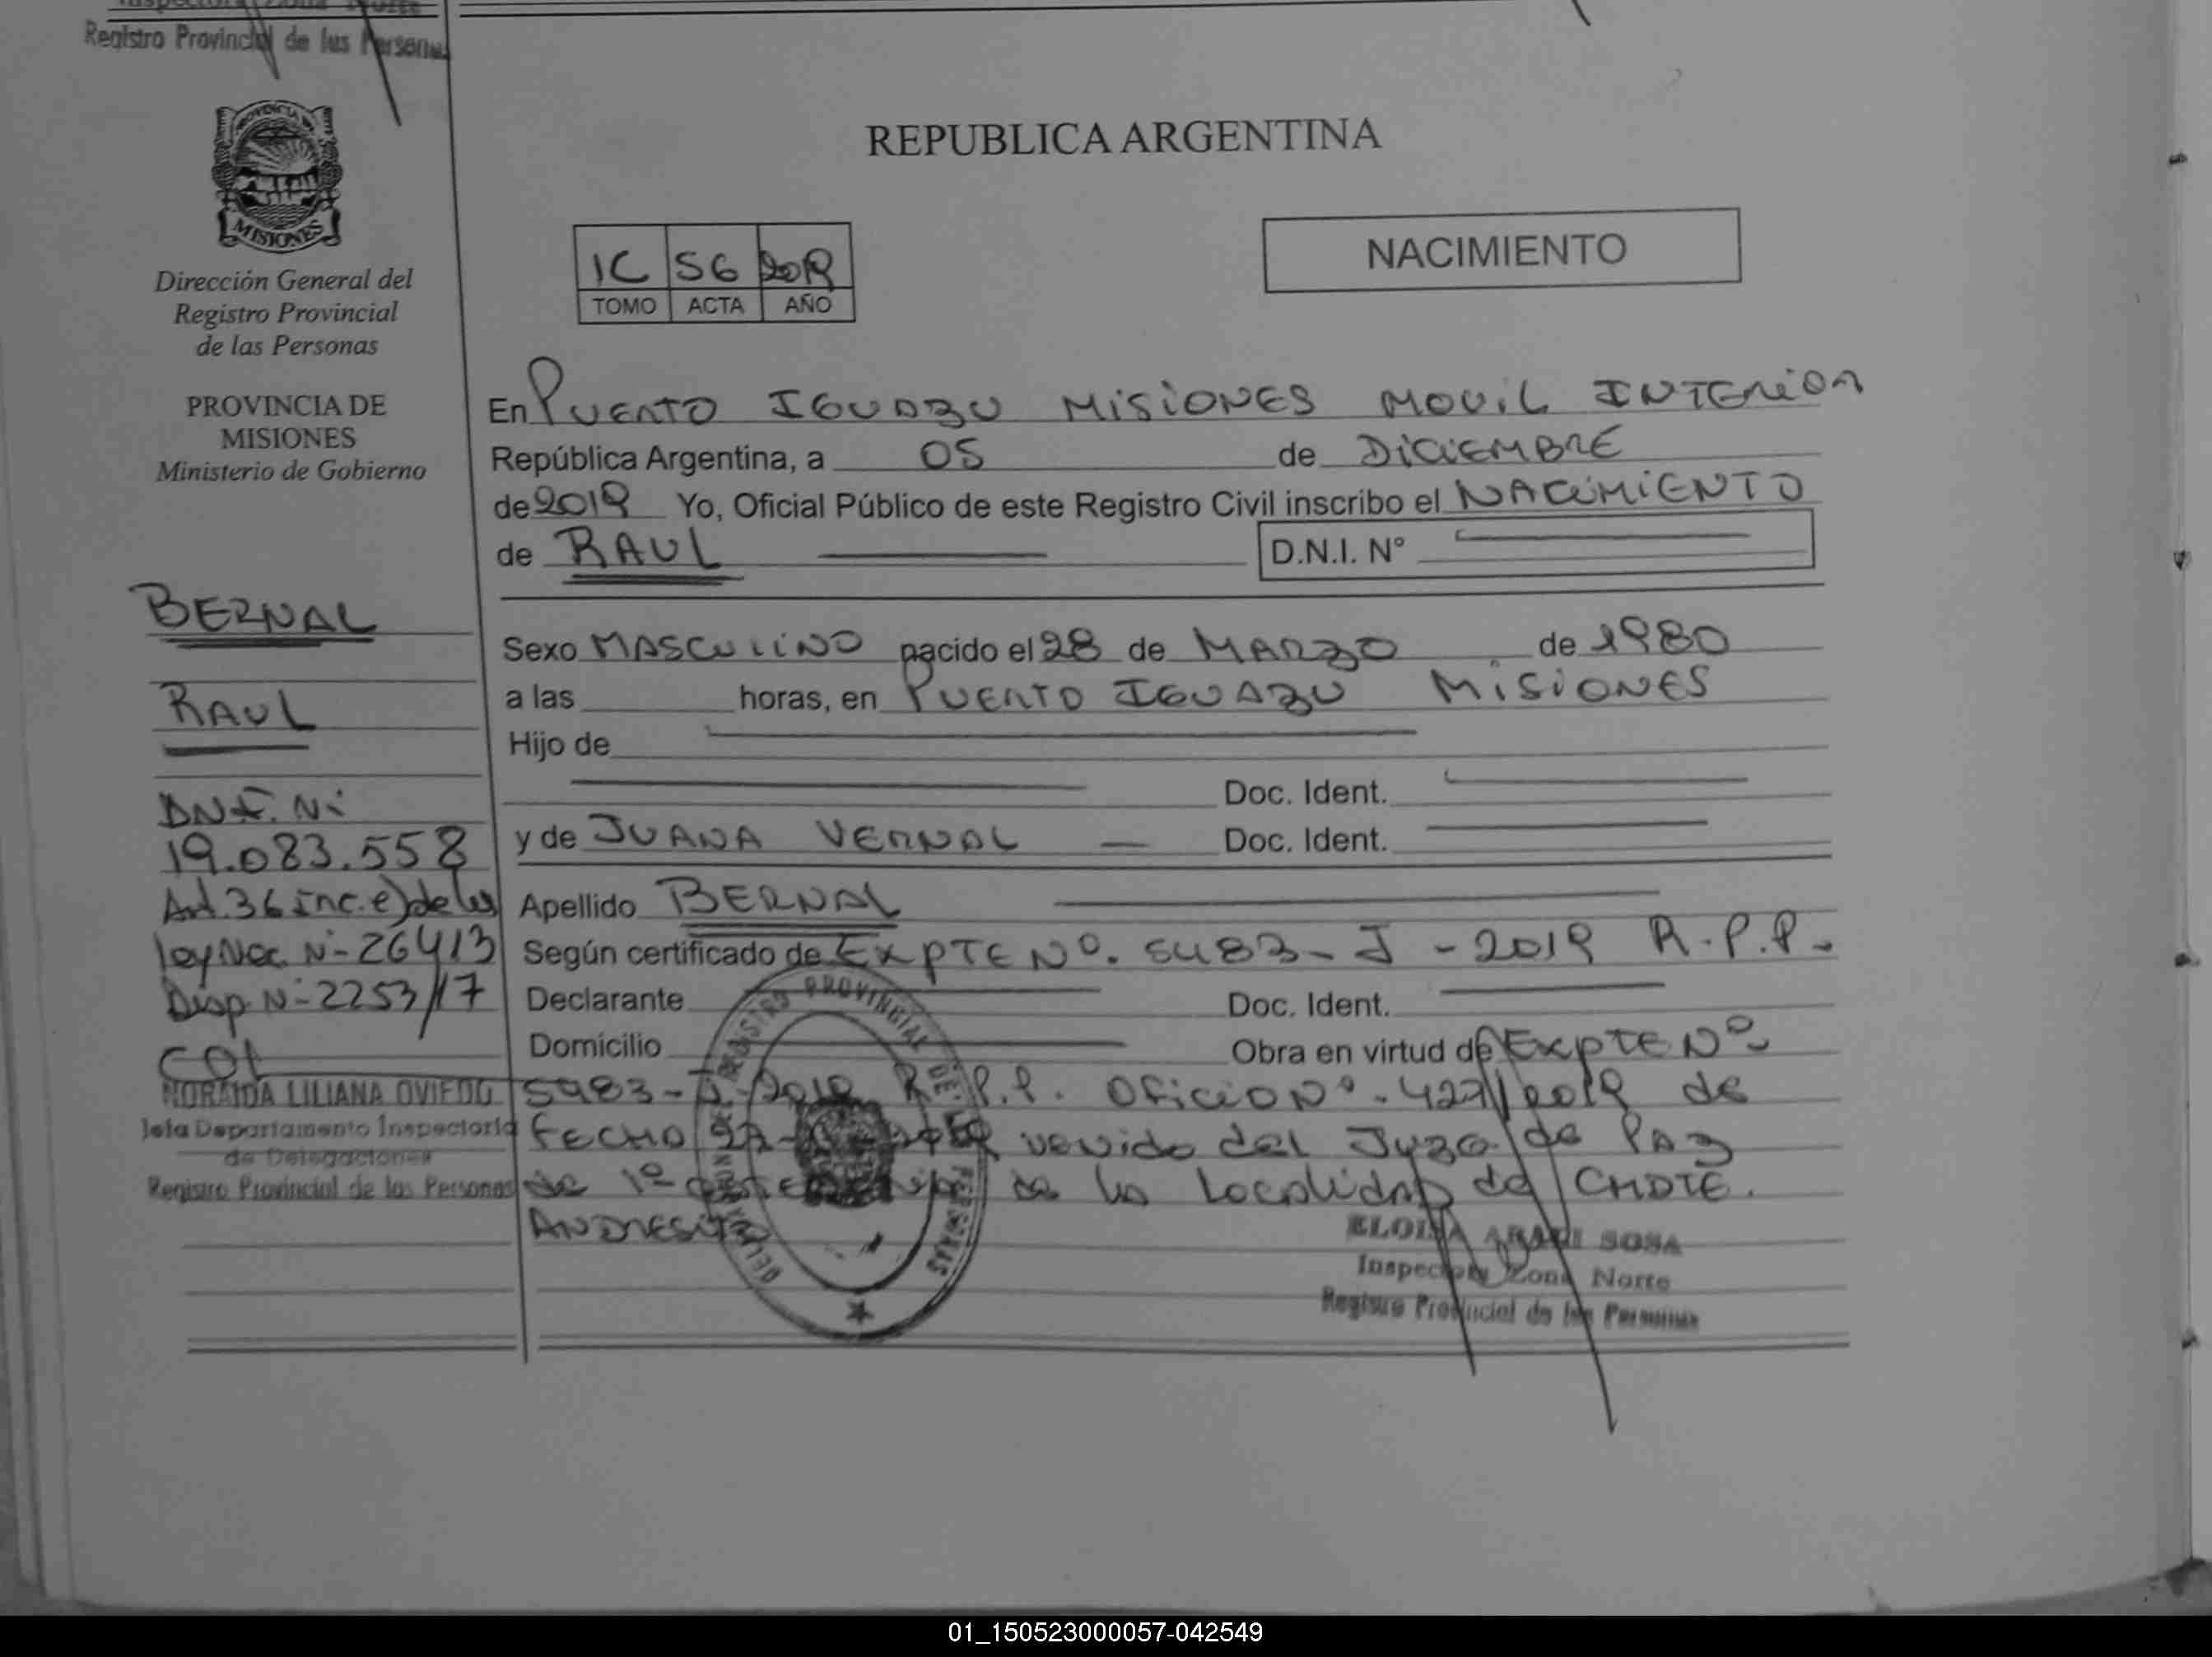 Registro Provincial de las Personas
PROVINCIA DE
MISIONES
Dirección General del
Registro Provincial
de las Personas
PROVINCIA DE
MISIONES
Ministerio de Gobierno
BERNAL
RAUL
DNI. Nº
19.083.558
Art. 36 inc. e) de la
ley Nac. Nº 26413
Disp. Nº 2253/17
NORAIDA LILIANA OVIEDO
Jefa Departamento Inspectoria
de Delegaciones
Registro Provincial de las Personas
REPUBLICA ARGENTINA
NACIMIENTO
1C 56 2019
TOMO ACTA AÑO
En PUERTO IGUAZU MISIONES MOVIL INTERIOR
República Argentina, a 05 de DICIEMBRE
de 2019 Yo, Oficial Público de este Registro Civil inscribo el NACIMIENTO
de RAUL D.N.I. N°
Sexo MASCULINO nacido el 28 de MARZO de 1980
a las horas, en PUERTO IGUAZU MISIONES
Hijo de
Doc. Ident.
y de JUANA VERNAL Doc. Ident.
Apellido BERNAL
Según certificado de EXPTE Nº. 5483-J-2019 R.P.P.
Declarante Doc. Ident.
Domicilio Obra en virtud de EXPTE Nº
5483-J-2019 R.P.P. Oficio Nº. 427/2019 de
FECHA venido del Juzg. de PAZ
de 1º de la Localidad de CMDTE.
ANDRESITO
ELOISA SOSA
Inspectora Zona Norte
Registro Provincial de las Personas
REGISTRO PROVINCIAL DE LAS PERSONAS
01_150523000057-042549